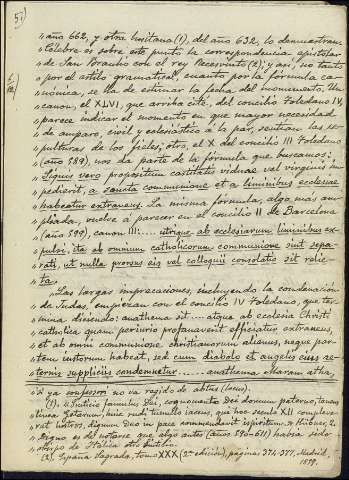 5)
„año 662, y otra lusitana (1), del año 632, lo demuestran.
Célebre es sobre este punto la correspondencia epistolar
„de San Braulio con el rey Recesvinto (2); y así, no tanto
„por el estilo gramatical, cuanto por la fórmula ca-
„nónica, se ha de estimar la fecha del monumento. Un
„canon, el XLVI, que arriba cité, del concilio Toledano IV,
„parece indicar el momento en que mayor necesidad
„de amparo, civil y eclesiástico á la par, sentían las se-
„pulturas de los fieles; otro, el X del concilio III Toledano
„(año 589), nos da parte de la fórmula que buscamos:
„Siquis vero propositum castitatis viduae vel virginis im-
„pedierit, a sancta communione et a liminibus ecclesiae
„habeatur extraneus. La misma fórmula, algo más am-
„pliada, vuelve a parecer en el concilio II de Barcelona
„(año 599), canon III: .... utrique ab ecclesiarum liminibus ex-
„pulsi, ita ab omnium catholicorum communione sint sepa-
„rati, ut nulla prorsus eis vel colloquii consolatio sit relic-
„ta.
„Las largas imprecaciones, incluyendo la condenación
„de Judas, empiezan con el concilio IV Toledano, que ter-
„mina diciendo: anathema sit .... atque ab ecclesia Christi
„catholica quam periurio profanaverit efficiatur extraneus,
„et ab omni communione christianorum alienus, neque par-
„tem iustorum habeat, sed cum diabolo et angelis eius ae-
„ternis suppliciis condemnetur ...... anathema maran atha,
„Si ya confessori no va regido de abitus (locus).
„(1). „Indicio famulus Dei, cognomento
„linea Getarum, hinc rudi tumulo iacens, qui hoc secla XII comple-
„rat
„Magno es de notarse que algo antes (años 590-611) había sido
„obispo de Itálica otro Sintico.
„(2). España Sagrada, tomo XXX (2.ª edición), página 374-377, Madrid,
1859.